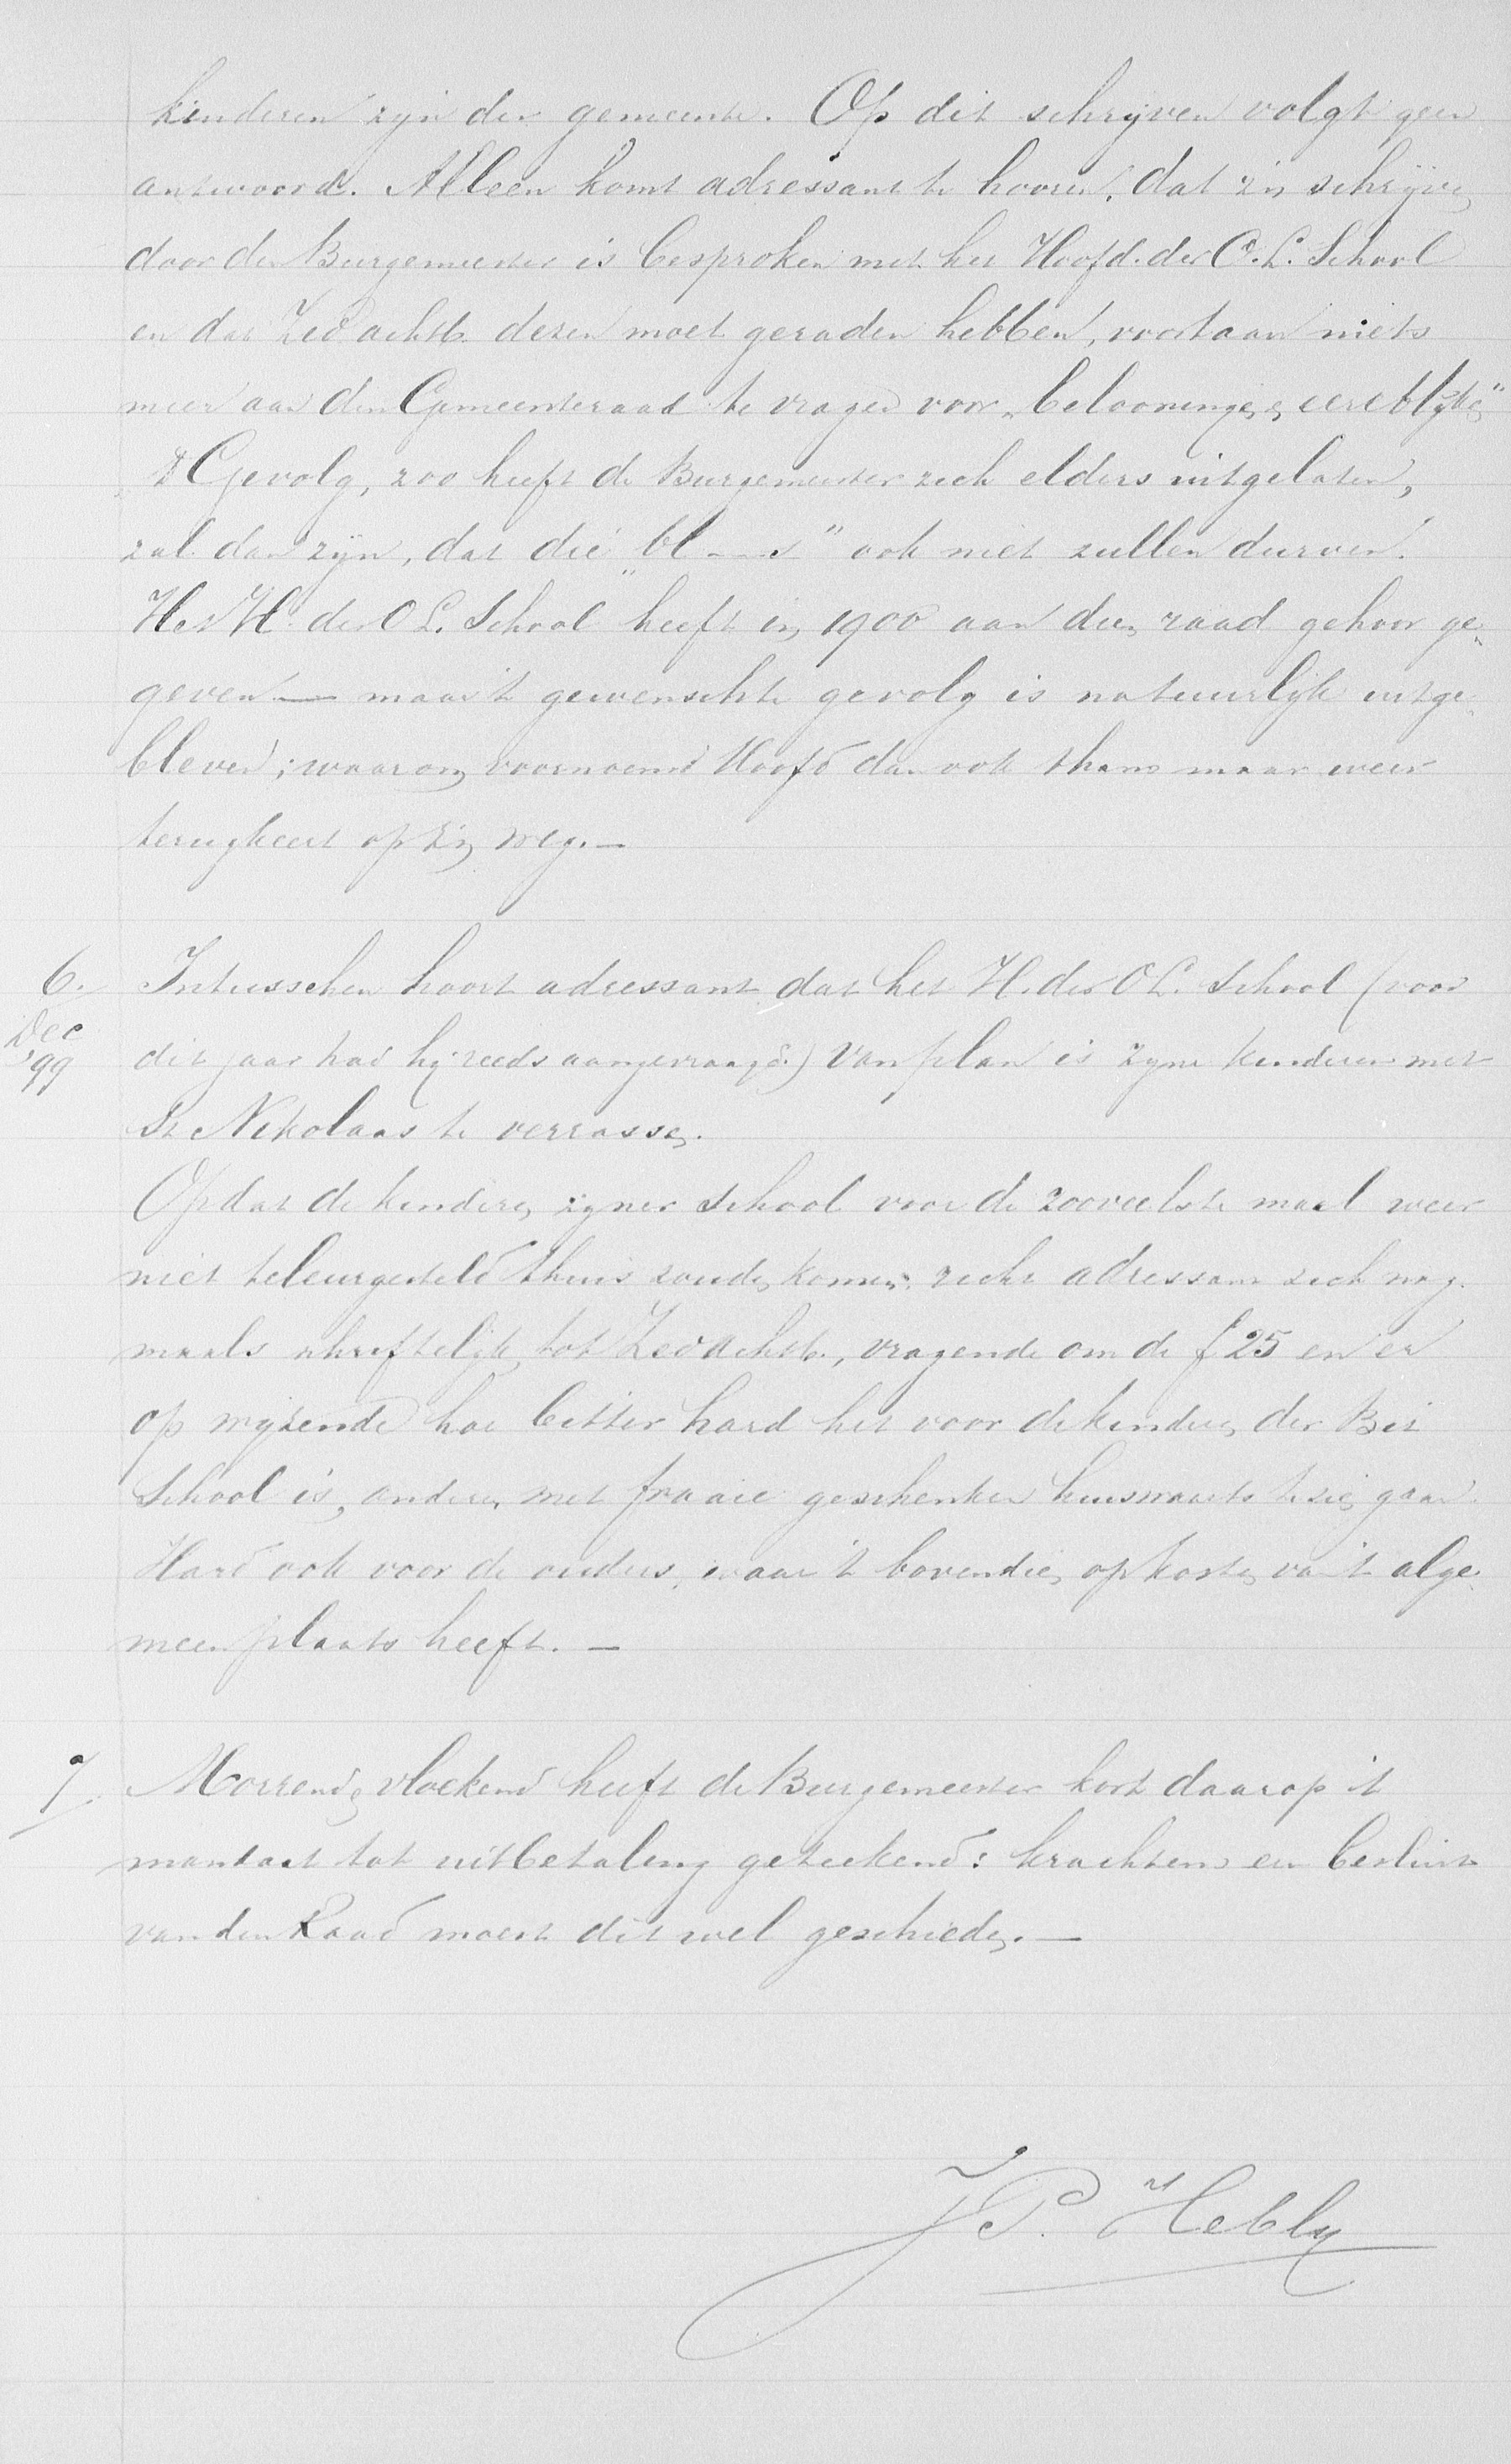 kinderen zijn der gemeente. Op dit schrijven volgt geen
antwoord. Alleen komt adressant te hooren, dat zijn schrijven
door den Burgemeester is besproken met het Hoofd der O.L. School
en dat Zed achtb. dezen moet geraden hebben, voortaan niets
meer aan den Gemeenteraad te vragen voor „belooningen en eereblijken"
't Gevolg, zoo heeft de Burgemeester zich elders uitgelaten,
zal dan zijn, dat die „bl---s" ook niet zullen durven.
Het H. der O L. School heeft in 1900 aan dien raad gehoor ge-
geven — maar 't gewenschte gevolg is natuurlijk uitge-
bleven; waarom voornoemd Hoofd dan ook thans maar weer
terugkeert op zijn weg. —
6. Intusschen hoort adressant dat het H. der O L. School (voor
Dec
'99 dit jaar had hij reeds aangevraagd.) van plan is zijne kinderen met
St Nikolaas te verrassen.
Opdat de kinderen zijner School voor de zooveelste maal weer
niet teleurgesteld thuis zouden komen, richt adressant zich nog-
maals schriftelijk tot Zed achtb., vragende om de f 25 en er
op wijzende hoe bitter hard het voor de kinderen der Biz
School is, anderen met fraaie geschenken huiswaarts te zien gaan.
Hard ook voor de ouders, waar 't bovendien op kosten van 't alge-
meen plaats heeft. —
7. Morrend en vloekend heeft de Burgemeester kort daarop 't
mandaat tot uitbetaling geteekend: krachtens een besluit
van den Raad moest dit wel geschieden. —
J P. Hebly